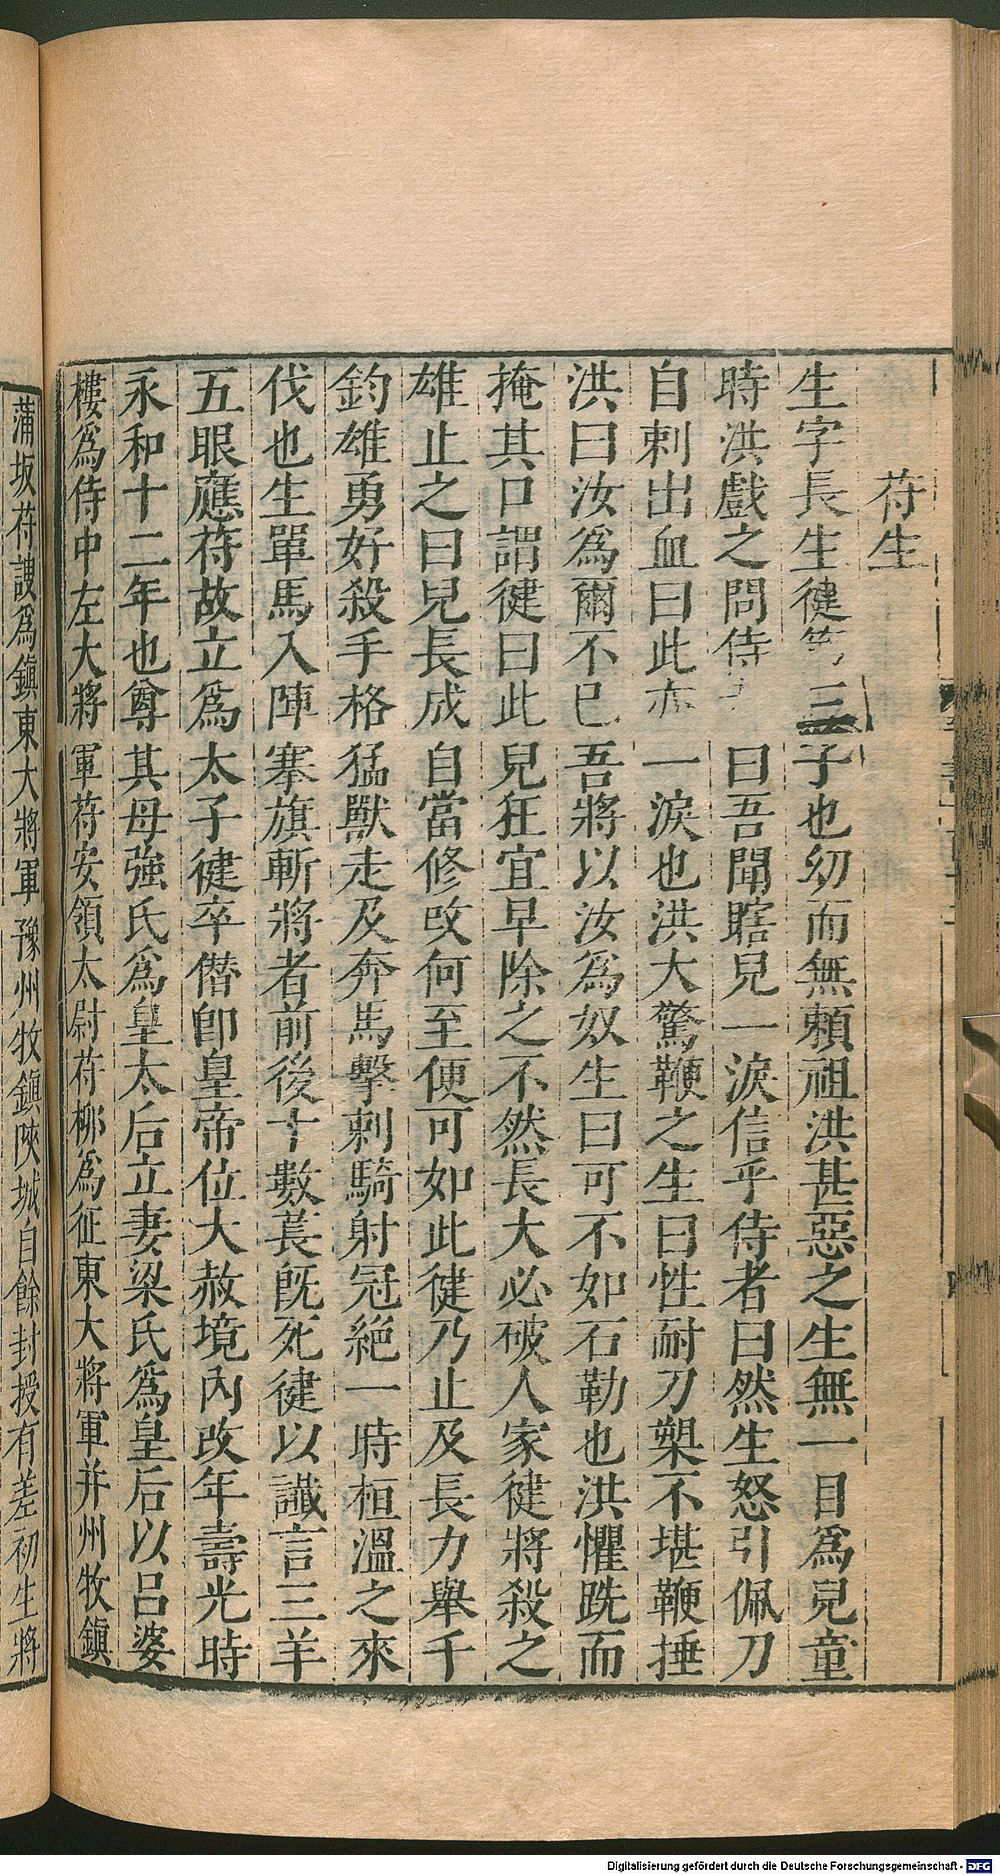 苻生
生字長生健第三子也幼而無賴祖洪甚惡之生無一目爲兒童
時洪戲之問侍者曰吾聞瞎兒一淚信乎侍者曰然生怒引佩刀
自刺出血曰此亦一淚也洪大驚鞭之生曰性耐刀槊不堪鞭捶
洪曰汝爲爾不已吾將以汝爲奴生曰可不如石勒也洪懼跣而
掩其口謂健曰此兒狂宜早除之不然長大必破人家健將殺之
雄止之曰兒長成自當修改何至便可如此健乃止及長力舉千
鈞雄勇好殺手格猛獸走及奔馬擊刺騎射冠絕一時桓溫之來
伐也生單馬入陣搴旗斬將者前後十數萇旣死健以讖言三羊
五眼應苻故立爲太子健卒僭卽皇帝位大赦境內改年壽光時
永和十二年也尊其母強氏爲皇太后立妻梁氏爲皇后以呂婆
樓爲侍中左大將軍苻安領太尉苻柳爲征東大將軍并州牧鎭
蒲坂苻謏爲鎭東大將軍豫州牧鎭陝城自餘封授有差初生將
Digitalisierung gefördert durch die Deutsche Forschungsgemeinschaft - DFG